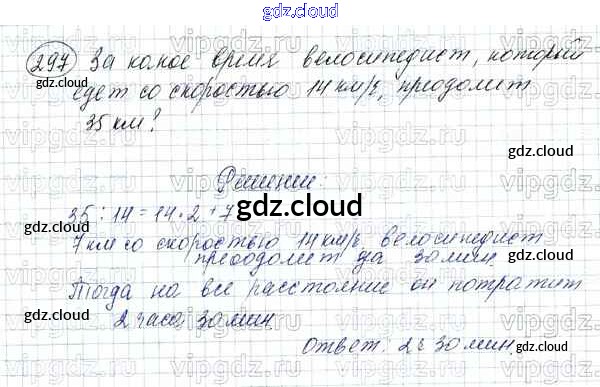 gdz.cloud
297 За какое время велосипедист, который
едет со скоростью 14 км/ч, преодолит
35 км?
gdz.cloud
Решение:
35 : 14 = 14 · 2 + 7
gdz.cloud
7 км со скоростью 14 км/ч велосипедист
преодолит за 30 мин.
Тогда на все расстояние он потратит
2 часа 30 мин.
gdz.cloud
Ответ. 2 ч 30 мин.
gdz.cloud